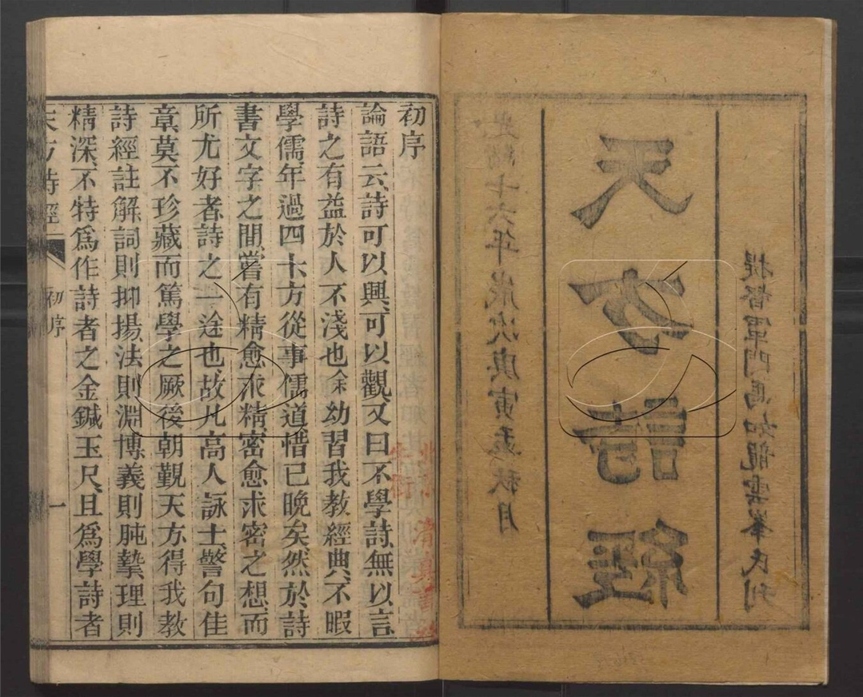 提督軍門馬如龍雲峯氏刊
天方詩經
光緒十六年歲次庚寅孟秋月
初序
論語云詩可以興可以觀又曰不學詩無以言
詩之有益於人不淺也余幼習我教經典不暇
學儒年過四十方從事儒道惜已晚矣然於詩
書文字之間嘗有精愈求精密愈求密之想而
所尤好者詩之一途也故凡高人詠士警句佳
章莫不珍藏而篤學之厥後朝覲天方得我教
詩經註解詞則抑揚法則淵博義則肫摯理則
精深不特爲作詩者之金鍼玉尺且爲學詩者
天方詩經
初序
一